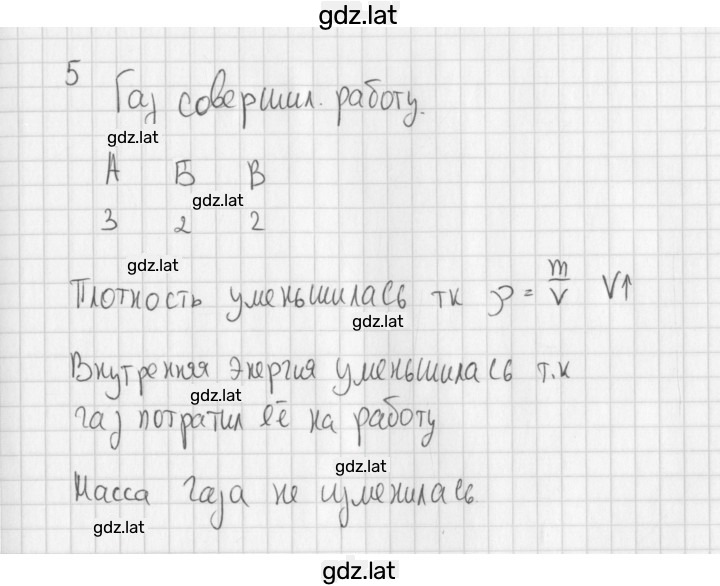 gdz.lat
5
Газ совершил. работу.
gdz.lat
А Б В
gdz.lat
3 2 2
gdz.lat
Плотность уменьшилась тк ρ = m/v V↑
gdz.lat
Внутренняя энергия уменьшилась т.к
gdz.lat
газ потратил её на работу
gdz.lat
Масса газа не изменилась
gdz.lat
gdz.lat